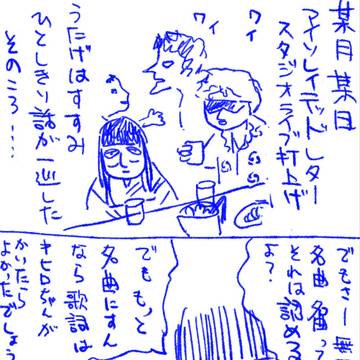 某月某日
アイソレイテッド レター
スタジオライブ打上げ
ワイ
ワイ
うたげはすすみ
ひとしきり話が一巡した
そのころ……
でもさー
名曲名曲って
それは認めろ
よ?
でももっと
名曲にすん
なら歌詞は
キヒロちゃんが
かいたら
よかったでしょう